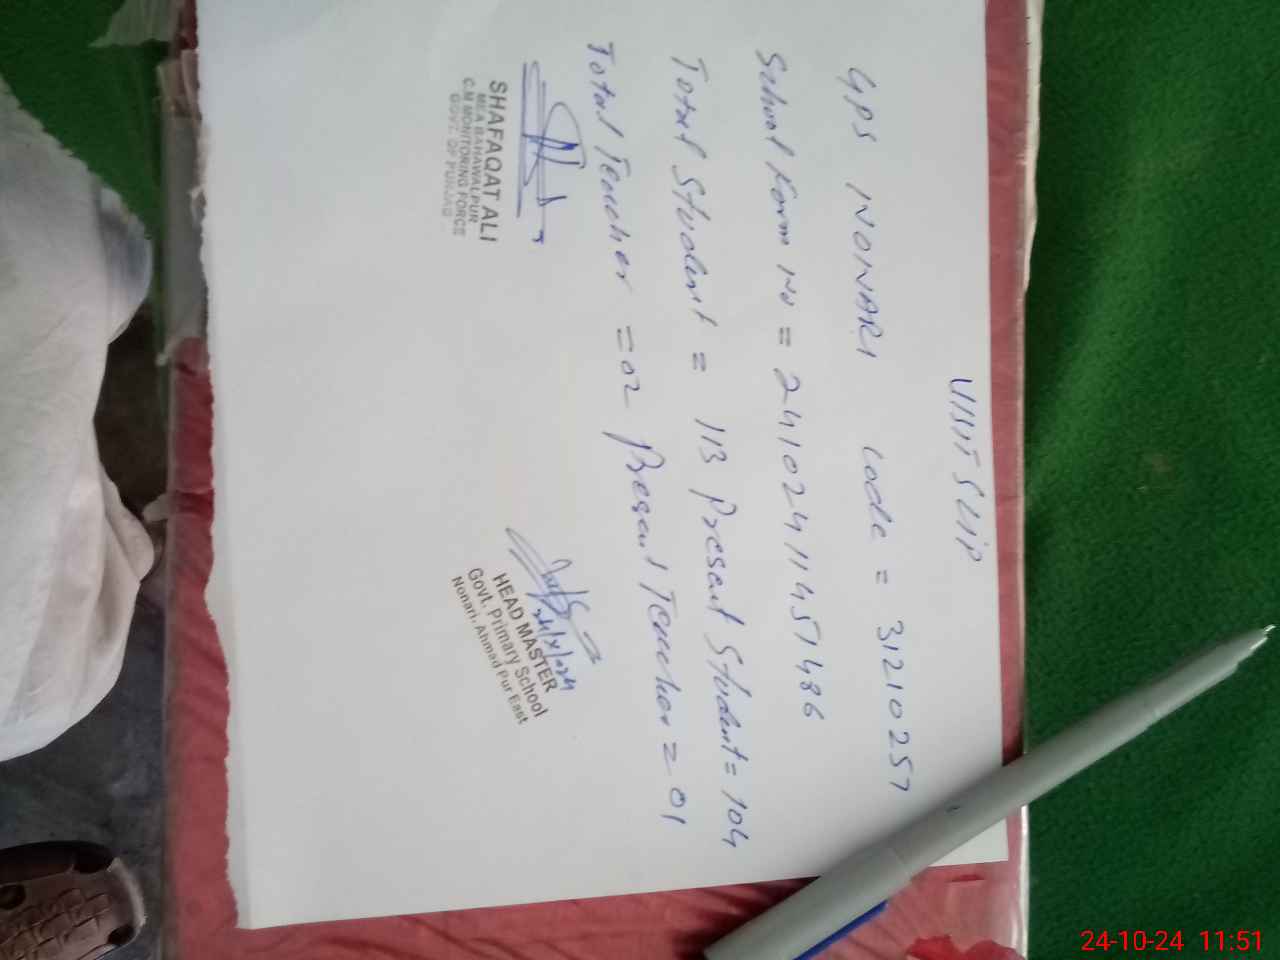 VISIT SLIP
GPS NONARI Code = 31210257
School Form No = 24102411451486
Total Student = 113 Present Student = 104
Total Teacher = 02 Present Teacher = 01
SHAFAQAT ALI
MEA BAHAWALPUR
C.M MONITORING FORCE
GOVT. OF PUNJAB
24/X/024
HEAD MASTER
Govt. Primary School
Nonari, Ahmad Pur East
24-10-24 11:51